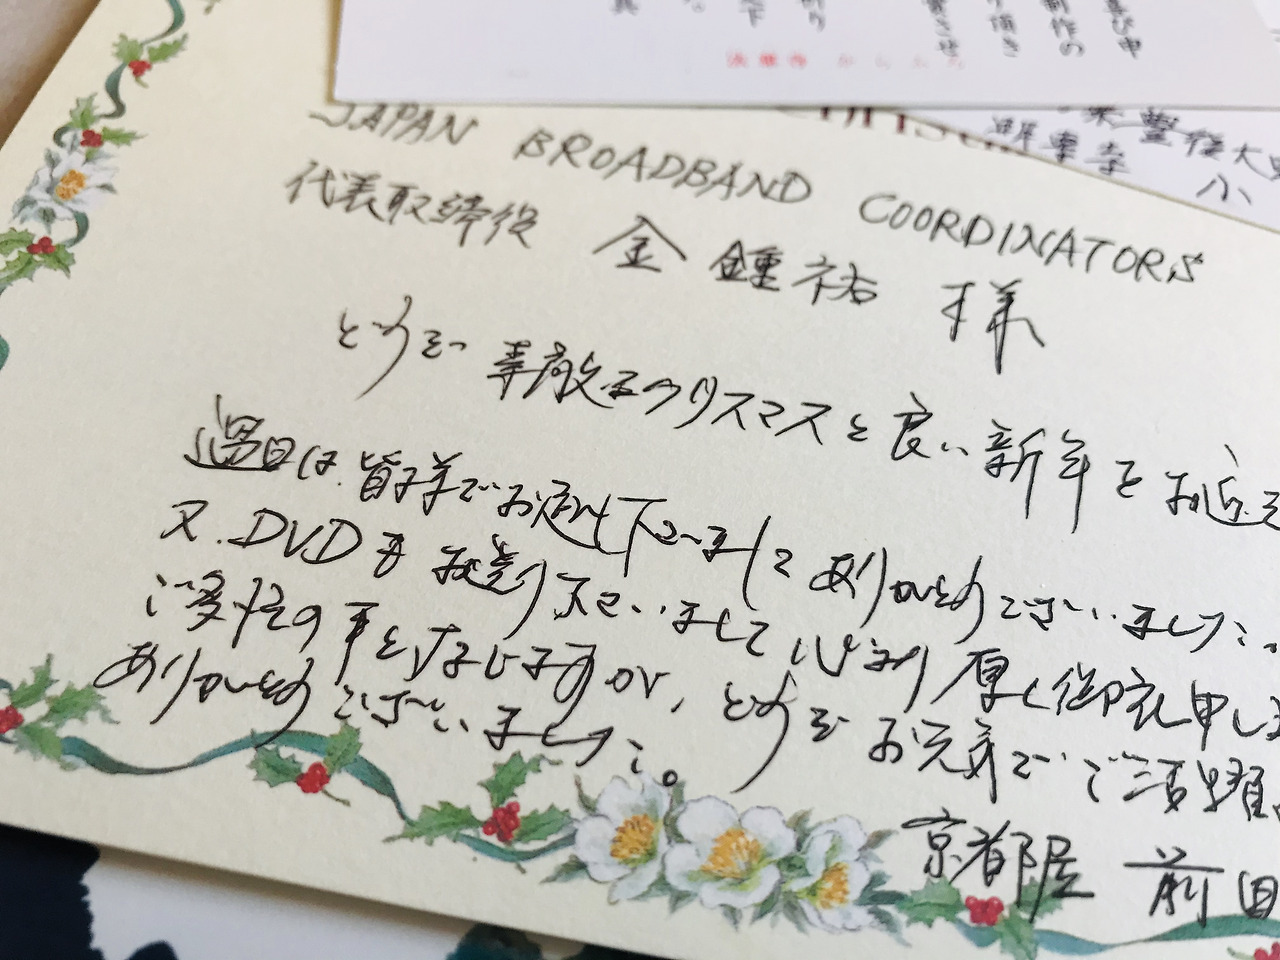 喜び中
制作の
り頂き
させ
下
JAPAN BROADBAND COORDINATORS
豊後大
代表取締役 金 鍾祐 様
どうぞ 素敵なクリスマスと良い新年をお迎え
過日は皆様でお越し下さいまして ありがとうございました。
又、DVDもお送り下さいまして 心より厚く御礼申し
ご多忙の事と存じますが、どうぞお元気でご活躍
ありがとうございました。
京都屋 前田